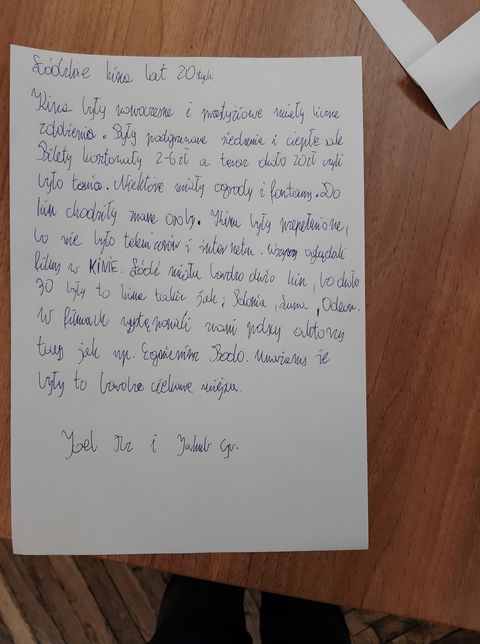 Łódzkie kina lat 20tych.
Kina były nowoczesne i prestiżowe miały liczne
zdobienia. Były podgrzewane siedzenia i ciepłe sale
Bilety kosztowały 2-6 zł a teraz około 20zł czyli
było tanio. Niektóre miały ogrody i fontanny. Do
kin chodziły znane osoby. Kina były przepełnione,
bo nie było telewizorów i internetu. Wszyscy oglądali
filmy w KINIE. Łódź miała bardzo dużo kin, bo około
30 były to kina takie jak; Polonia, Luna, Odeon.
W filmach występowali znani polscy aktorzy
tacy jak np. Eugeniusz Bodo. Uważamy że
były to bardzo ciekawe miejsca.
i Jakub Gr.